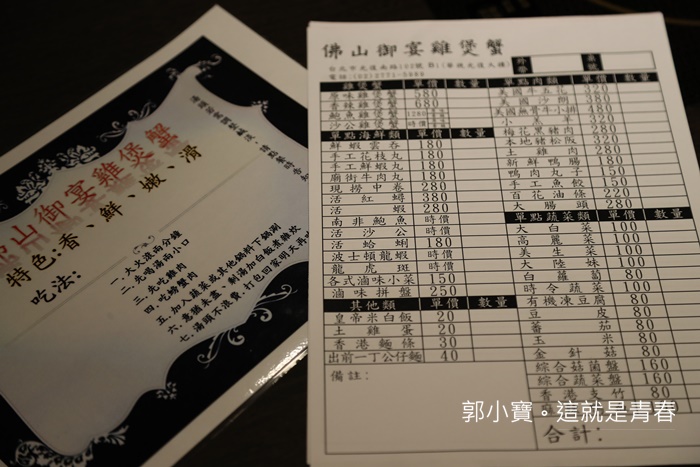 佛山御宴雞煲蟹
特色:香、鮮、嫩、滑
吃法:
一.大火滾五分鐘
二.先喝湯兩小口
三.先吃雞肉
四.吃螃蟹肉
佛山御宴雞煲蟹
雞煲蟹 單價 數量
原味雞煲蟹 580
香辣雞煲蟹 680
鮑魚雞煲蟹 1280
沙公雞煲蟹 時價
單點海鮮類 單價 數量
鮮蝦雲吞 180
手工花枝丸 180
手工鮮蝦丸 180
廟街牛肉丸 180
現撈中卷 280
活紅蟳 380
活蝦 280
南非鮑魚 時價
活沙公 時價
活蛤蜊 180
波士頓龍蝦 時價
龍虎斑 時價
各式滷味小菜 150
滷味拼盤 250
其他類 單價 數量
皇帝米白飯 20
土雞蛋 20
香港麵條 30
出前一丁公仔麵 40
備註:
單點肉類 單價 數量
美國牛五花 320
美國沙朗 380
美國無骨牛小排 480
羊 320
梅花黑豬肉 280
本地豬松阪 320
土雞肉 280
新鮮鴨腸 180
鴨肉丸子 150
手工魚餃 150
百花油條 220
大腸頭 280
單點蔬菜類 單價 數量
大白菜 100
高麗菜 100
美生菜 100
大陸妹 100
白蘿蔔 80
時令蔬菜 100
有機凍豆腐 80
豆皮 80
番茄 80
玉米 80
金針菇 80
綜合菇菌盤 160
綜合蔬菜盤 160
香港支竹 80
合計:
郭小寶。這就是青春